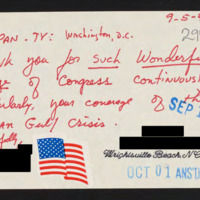 9-5-9
PAN-TV: Washington, D.C.
nk you for such Wonderfu
ge of Congress continuous
ularly, your coverage of th
SEP 1
an Gulf Crisis.
fully,
Wrightsville Beach, N.C
OCT 01 ANS'D